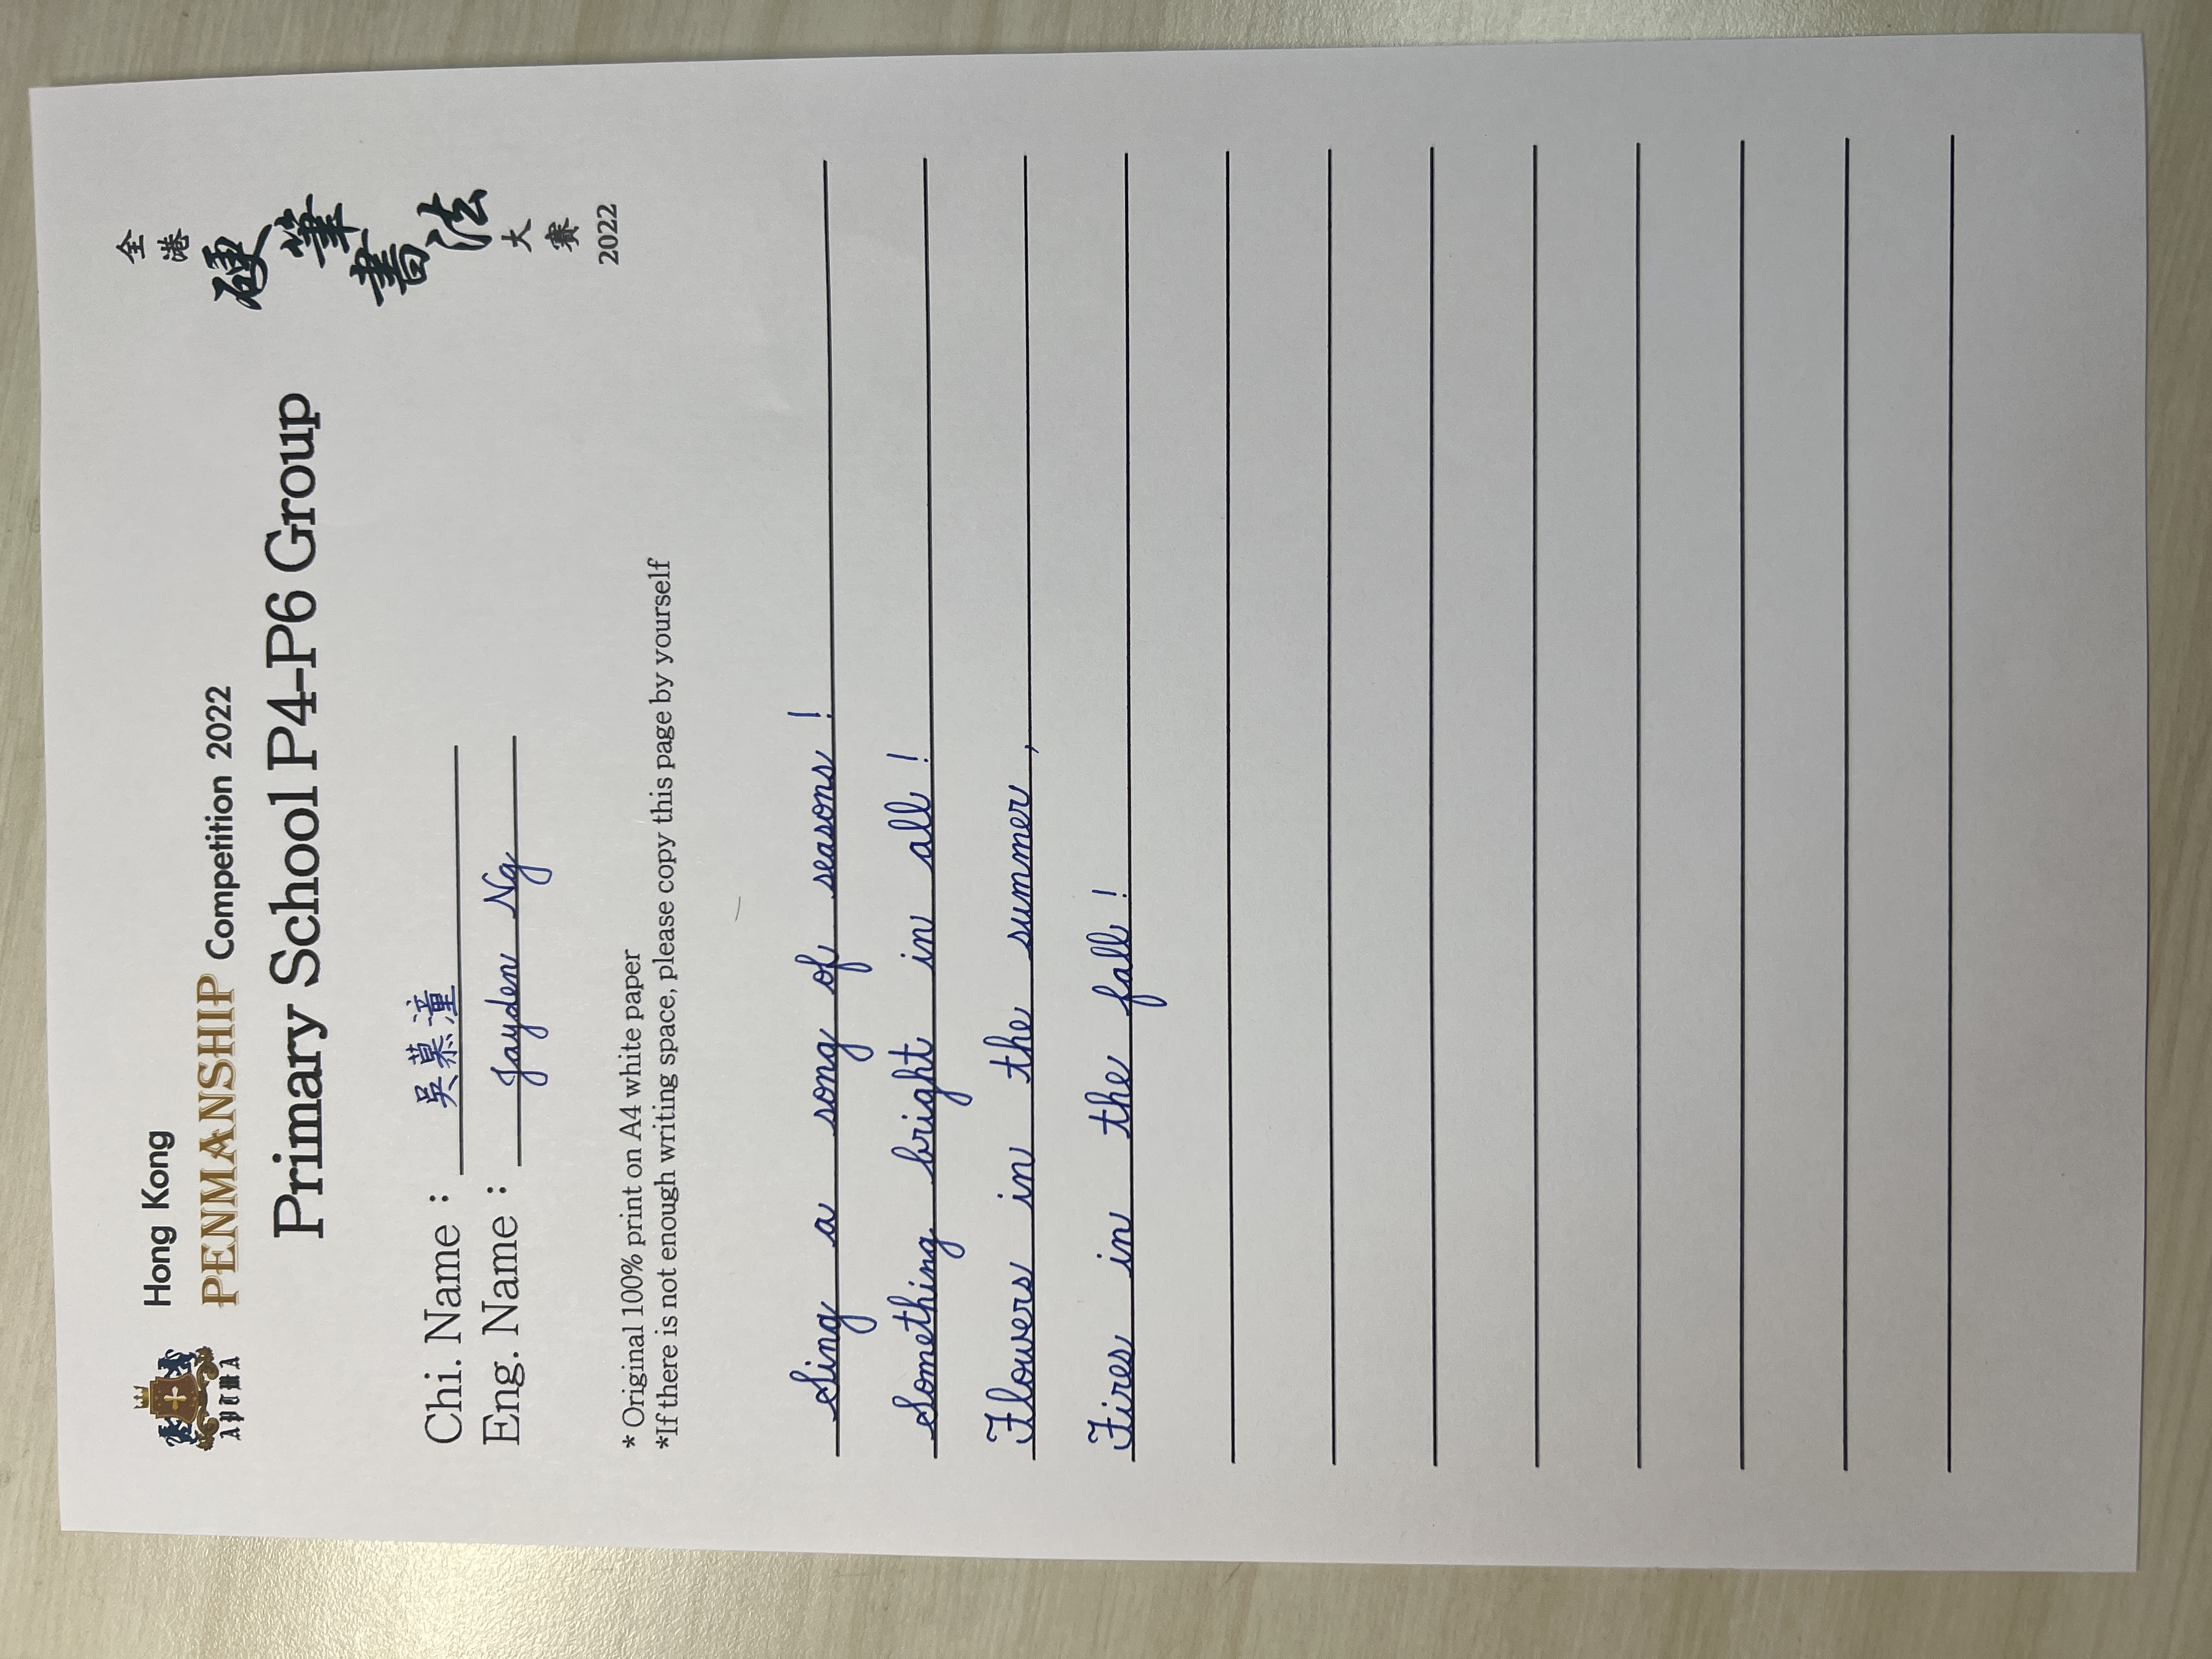 Hong Kong
PENMANSHIP Competition 2022
Primary School P4-P6 Group
APCMA
全港
硬筆
書法
大賽
2022
Chi. Name : 吳慕潼
Eng. Name : Jayden Ng
* Original 100% print on A4 white paper
*If there is not enough writing space, please copy this page by yourself
Sing a song of seasons !
Something bright in all !
Flowers in the summer ,
Fires in the fall !